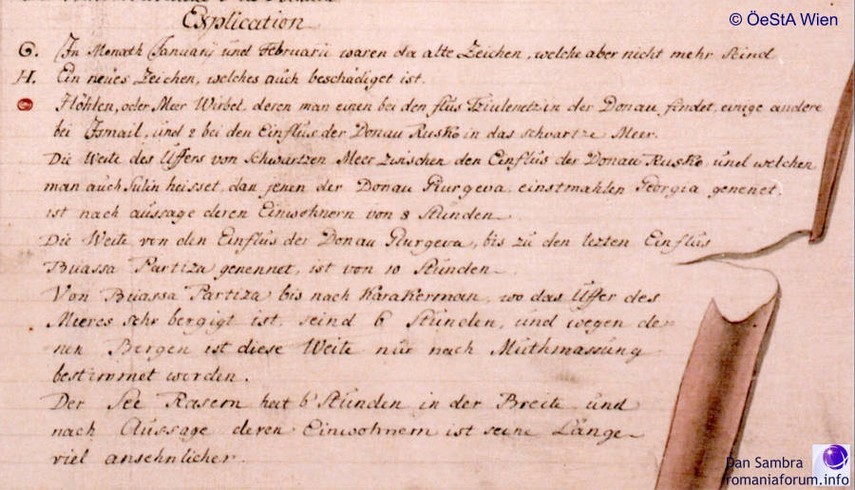 © ÖeStA Wien
Explication
G. In Monath January und Februarii waren da alte Zeichen, welche aber nicht mehr seind
H. Ein neues Zeichen, welches auch beschädiget ist.
Höhlen, oder Meer Wirbel, deren man einen bei den flus in der Donau findet, einige andere
bei Ismail, und 2 bei den Einflus der Donau Rusko in das schwartze Meer.
Die Weite des Uffers von Schwartzen Meer zwischen den Einflus der Donau Rusko, und welchen
man auch Sulin heisset, dan jenen der Donau Gurgeva, einstmahlen Georgia genennet,
ist nach aussage deren Einwohnern von 8 Stunden
Die Weite von den Einflus der Donau Gurgeva, bis zu den lezten Einflus
Buassa Partiza genennet, ist von 10 Stunden
Von Buassa Partiza bis nach Karakerman, wo das Uffer des
Meeres sehr bergigt ist, seind 6 Stunden, und wegen de
nen Bergen ist diese Weite nur nach Muthmassung
bestimmet worden.
Der See Rasem hat 6 Stunden in der Breite und
nach Aussage deren Einwohnern ist seine Länge
viel ansehnlicher
Dan Sambra
romaniaforum.info